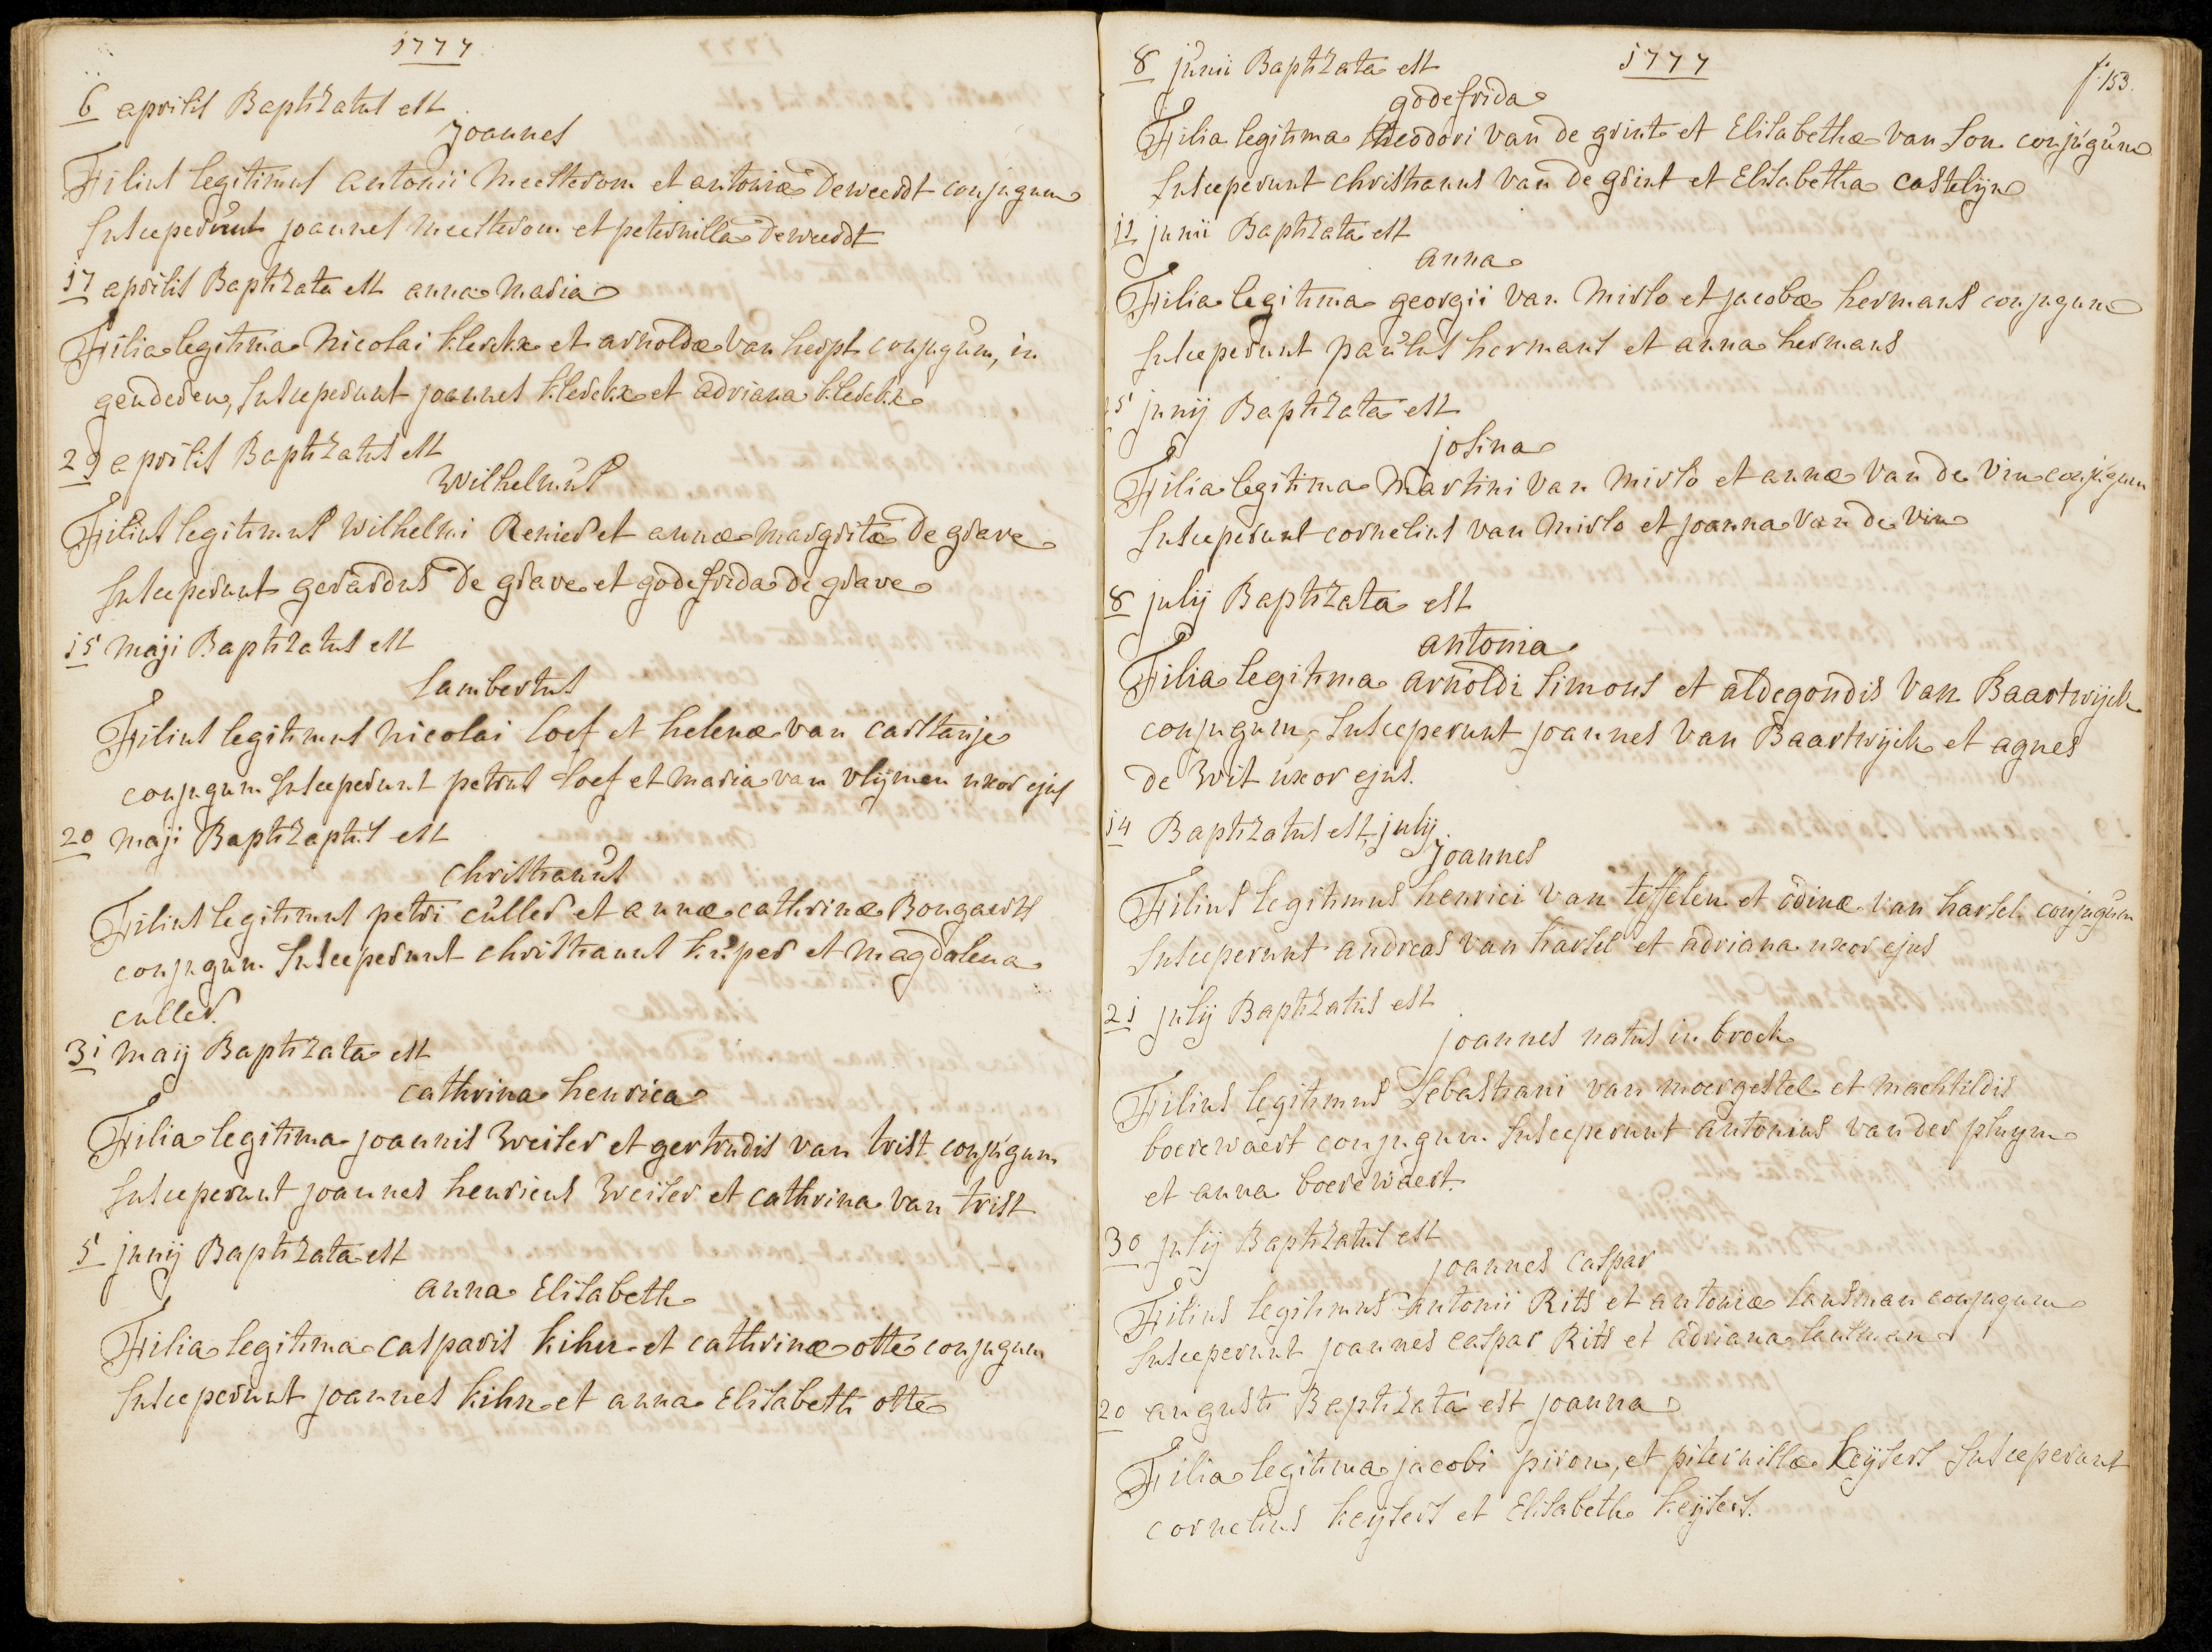 1777
6 aprilis Baptizatus est
Joannes
Filius legitimus antonii Meesterom et antoniæ Deweerdt conjugum
Susceperunt joannes Meesterom et peternilla deweerdt
17 aprilis Baptizata est anna Maria
Filia legitima Nicolai klerckx et arnoldæ van herpt conjugum, in
genderen, Susceperunt joannes klerckx et adriana klerckx
29 aprilis Baptizatus est
Wilhelmus
Filius legitimus Wilhelmi Renier et annæ margritæ De grave
Susceperunt gerardus De grave et godefrida de grave
15 maji Baptizatus est
Lambertus
Filius legitimus nicolai loef et helenæ van carstanje
conjugum Susceperunt petrus loef et maria van vlijmen uxor ejus
20 maji Baptizaptus est
Christianus
Filius legitimus petri culler et annæ cathrinæ Bongaerts
conjugum Susceperunt christianus kuper et magdalena
culler.
31 maij Baptizata est
Cathrina henrica
Filia legitima joannis Weiser et gertrudis van trist conjugum
Susceperunt joannes henricus Weiser et cathrina van trist
5 junij Baptizata est
anna Elisabeth
Filia legitima casparis kihn et cathrinæ otte conjugum
Susceperunt joannes kihn et anna Elisabeth otte
8 junii Baptizata est
1777
f. 153.
godefrida
Filia legitima theodori van de grint et Elisabethæ van Son conjugum
Susceperunt christianus van de grint et Elisabetha castelijn
11 junii Baptizata est
anna
Filia legitima georgii van Mirlo et jacobæ hermans conjugum
Susceperunt paulus hermans et anna hermans
15 junij Baptizata est
josina
Filia legitima Martini van Mirlo et annæ van de Vin conjugum
Susceperunt cornelius van Mirlo et joanna van de vin
8 julij Baptizata est
antonia
Filia legitima arnoldi Simons et aldegondis van Baartwijck
conjugum, Susceperunt joannes van Baartwijck et agnes
de Wit uxor ejus.
14 Baptizatus est, julij.
Joannes
Filius legitimus henrici van teffelen et odinæ van harsel conjugum
Susceperunt andreas van harsel et adriana uxor ejus
21 julij Baptizatus est
joannes natus in broek
Filius legitimus Sebastiani van moergestel et machtildis
boerewaert conjugum Susceperunt antonius van der pluym
et anna boerewaert.
30 julij Baptizatus est
joannes caspar
Filius legitimus antonii Rits et antoniæ lansman conjugum
Susceperunt joannes caspar Rits et adriana lansman
20 augusti Baptizata est joanna
Filia legitima jacobi piron, et piternillæ keijsers Susceperunt
cornelius keijsers et Elisabeth keijsers.